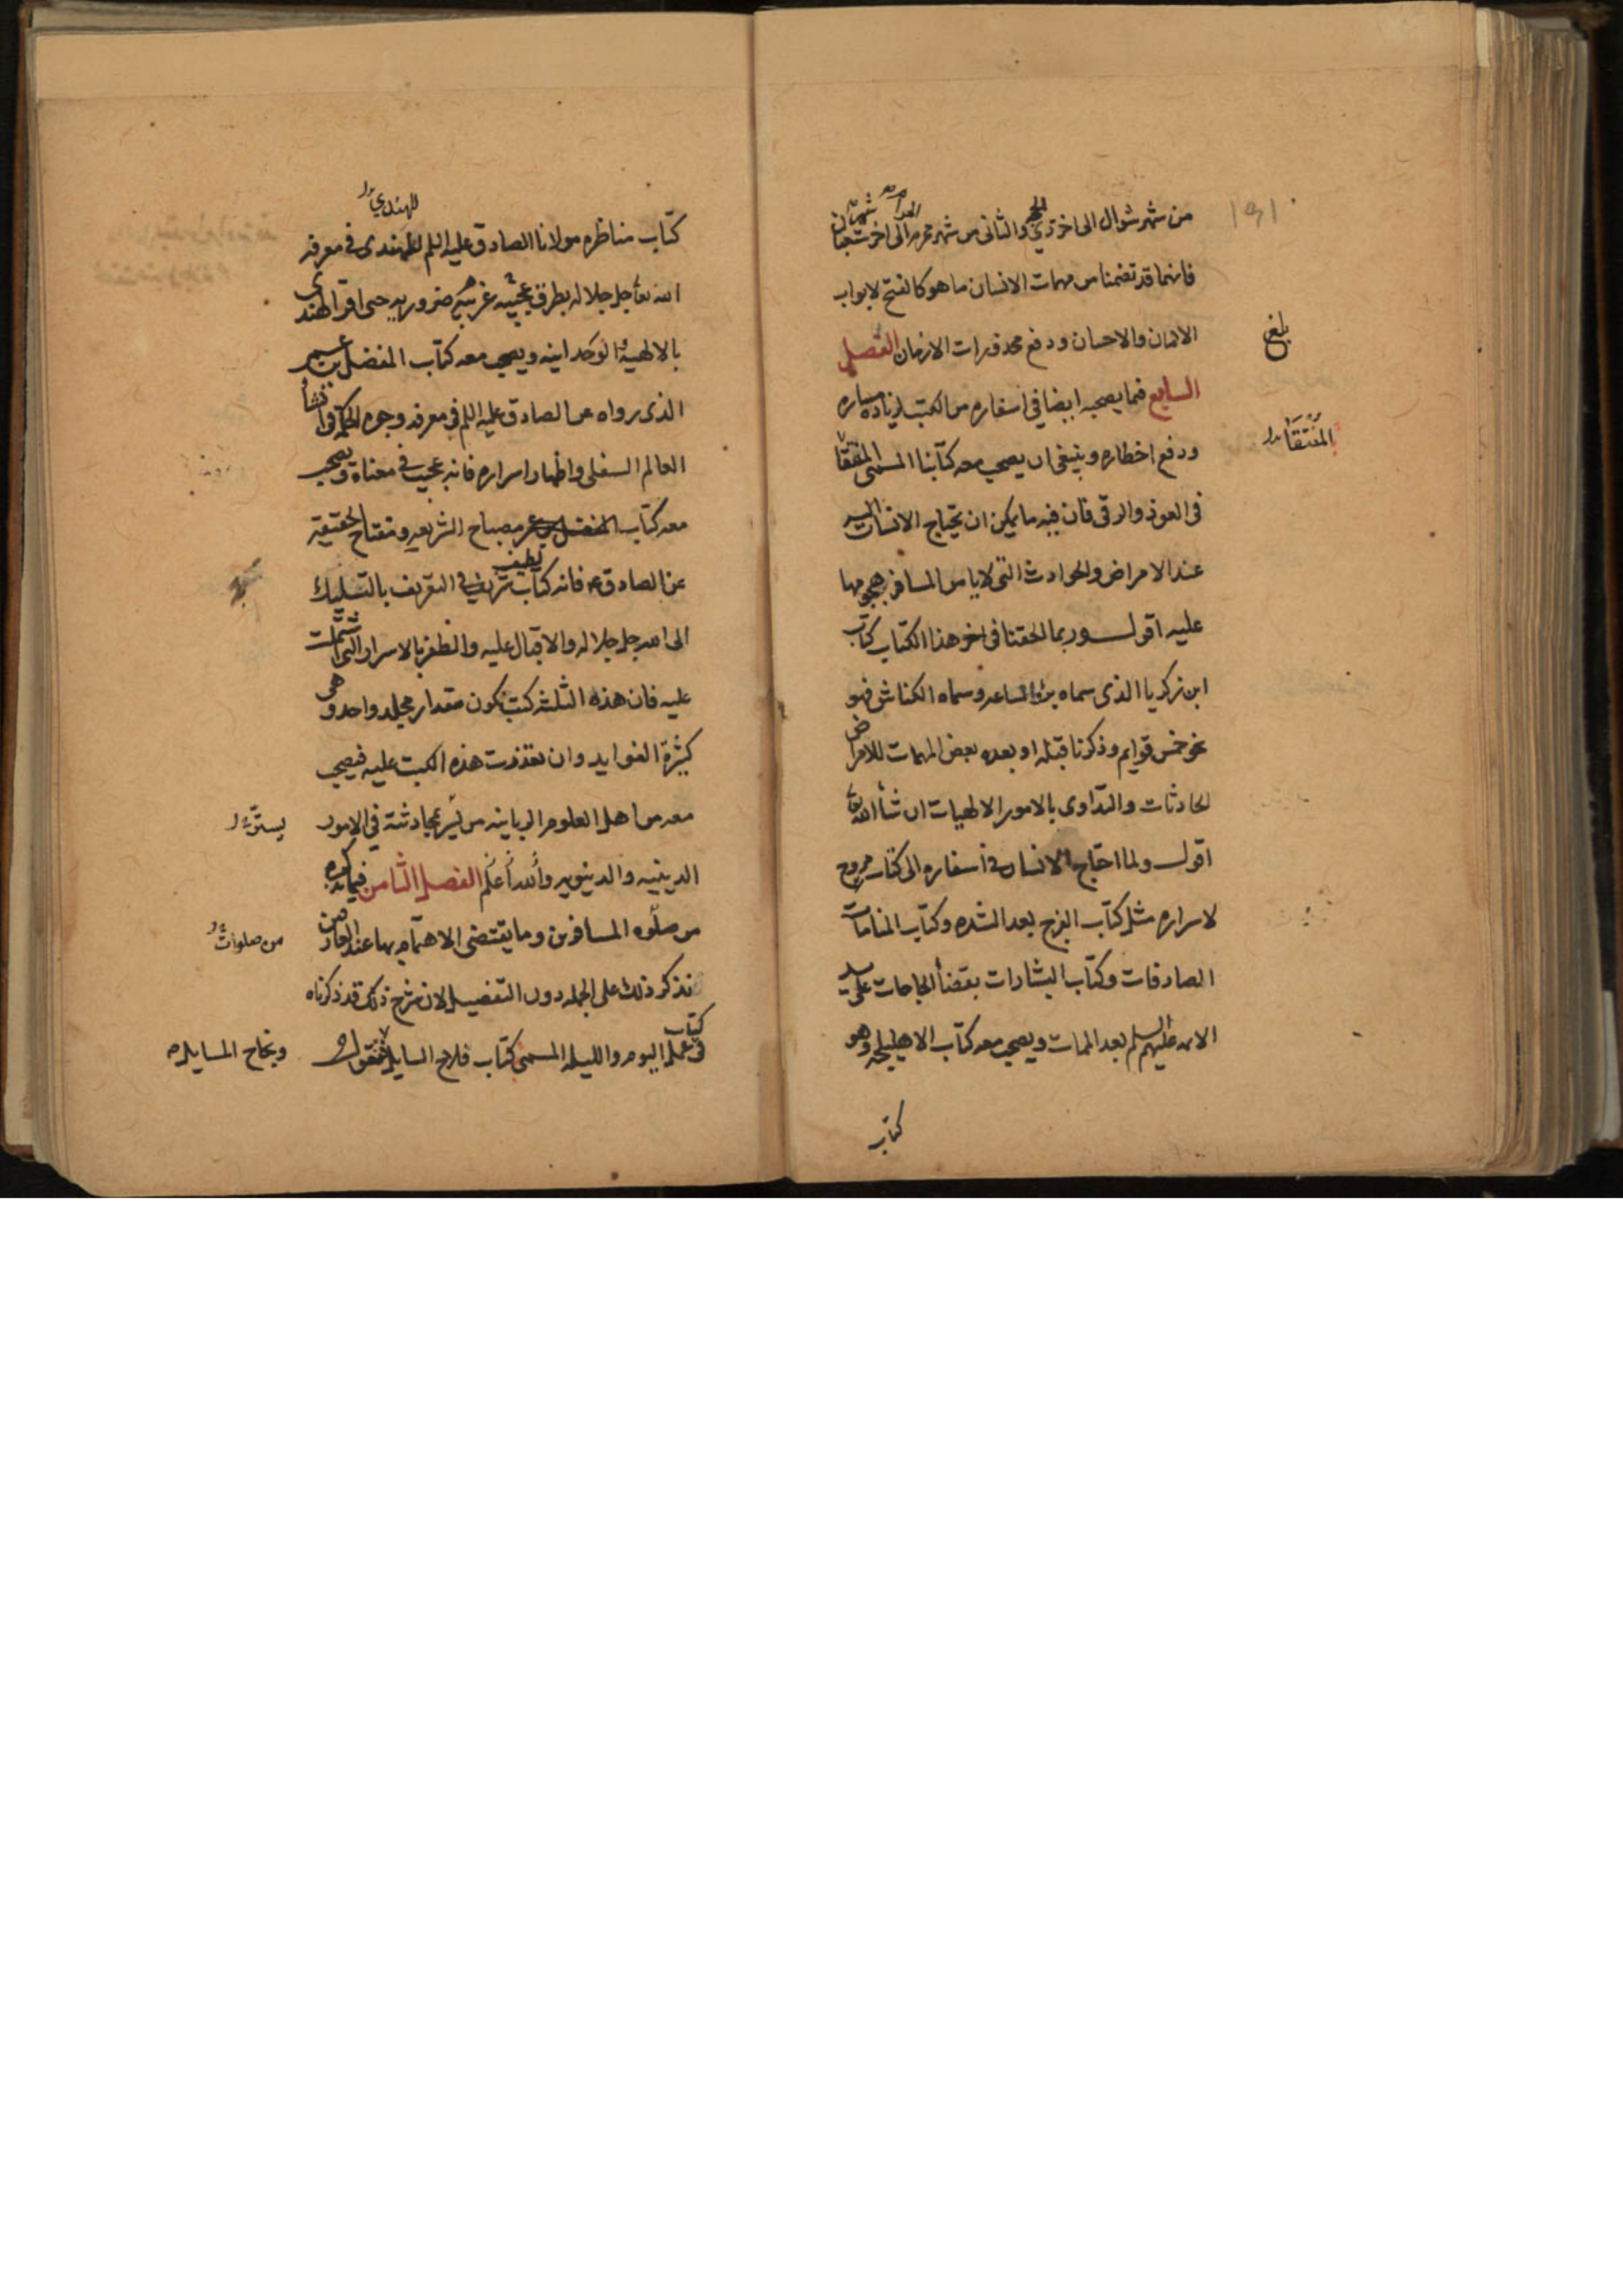 من شهر شوال الى اخر ذي الحجه والثانى من شهر محرم الى اخر شعبان
فانهما قد تضمنا من مهمات الانسان ما هو كالفتح لابواب
الامان والاحسان ودفع محذورات الازمان الفصل
السابع فيما يصحبه ايضا في اسفاره من الكتب لزياده مساره
ودفع اخطاره وينبغى ان يصحب معه كتابنا المسمى المنتقا
فى العوذ والرقى فان فيه ما يمكن ان يحتاج الانسان اليه
عند الامراض والحوادث التى لا يامن المسافر هجومها
عليه اقول وربما الحقنا فى اخر هذا الكتاب كتاب
ابن زكريا الذى سماه برء الساعه وسماه الكناش فهو
نحو خمس قوايم وذكرنا قبله او بعده بعض المهمات للامراض
الحادثات والتداوى بالامور الالهيات ان شاء الله
اقول ولما احتاج الانسان فى أسفاره الى كتاب مروح
لاسراره مثل كتاب الفرج بعد الشده وكتاب المنامات
الصادقات وكتاب البشارات بقضاء الحاجات على يد
الائمه عليهم السلم بعد الممات ويصحب معه كتاب الاهليلجه وهو
كتاب
بلغ
المُنْتَقَا
١٩١
للهندي
كتاب مناظره مولانا الصادق عليه السلم للهندى فى معرفه
الله جل جلاله بطرق عجيبه غريبه ضروريه حتى اقر الهندى
بالالهيه والوحدانيه ويصحب معه كتاب المفضل بن عمر
الذى رواه عن الصادق عليه السلم فى معرفه وجوه الحكمه فى انشأ
العالم السفلى واظهار اسراره فانه عجيب فى معناه ويصحب
معه كتاب مصباح الشريعه ومفتاح الحقيقه
عن الصادق ع فانه كتاب شريف لطيف فى التعريف بالتسليك
الى الله جل جلاله والاقبال عليه والظفر بالاسرار التى اشتملت
عليه فان هذه الثلثه كتب تكون مقدار مجلد واحد وهى
كثيرة الفوايد وان تعذرت هذه الكتب عليه فيصحب
معه من اهل العلوم الربانيه من يسر بمحادثته فى الامور
الدينيه والدنيويه والله أعلم الفصل الثامن فيما نذكره
من صلوه المسافرين وما يقتضى الاهتمام بها عند العارفين
نذكر ذلك على الجمله دون التفصيل لان شرح ذلك قد ذكرناه
فى كتاب عمل اليوم والليله المسمى كتاب فلاح السايل فنقول
من صلوات
ونجاح المسايل